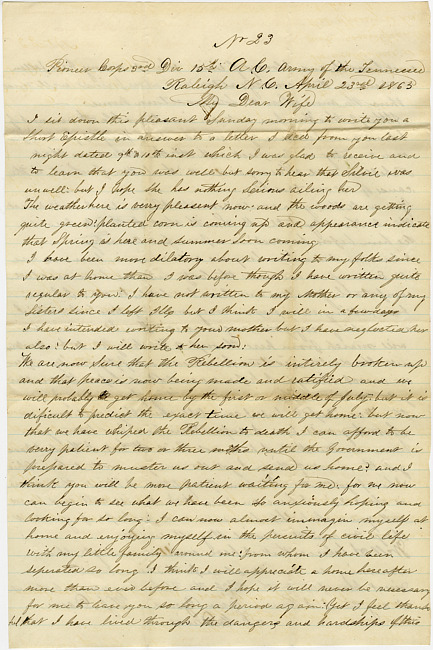 No 23
Pioneer Corps 3rd Div 15th A.C. Army of the Tennessee
Raleigh N.C. April 23rd 1865
My Dear Wife
I sit down this pleasant Sunday morning to write you a
short Epistle in answer to a letter I recd from you last
night dated 9th & 10th inst which I was glad to receive and
to learn that you was well but sorry to hear that was
unwell but I hope she has nothing serious ailing her
The weather here is very pleasant now and the woods are getting
quite green: planted corn is coming up and appearance indicate
that Spring is here and summer soon coming
I have been more dilatory about writing to my folks since
I was at home than I was before though I have written quite
regular to you. I have not written to my Mother or any of my
Sisters since I left Ills but I think I will in a few days
I have intended writing to your mother but I have neglected her
also: but I will write to her soon:
We are now sure that the Rebellion is intirely broken up
and that peace is now being made and ratified and we
will probably get home by the first or middle of July: but it is
dificult to predict the exact time we will get home: but now
that we have whiped the Rebellion to death I can afford to be
very patient for two or three mths until the Government is
prepared to muster us out and send us home: and I
think you will be more patient waiting for me: for we now
can begin to see what we have been so anxiously hoping and
looking for so long. I can now almost immagin myself at
home and enjoying myself in the persuits of civil life
with my little family around me: from whom I have been
seperated so long I think I will appreciate a home hereafter
more than ever before and I hope it will never be necessary
for me to leave you so long a period again: Yet I feel thank
ful that I have lived through the dangers and hardships of this